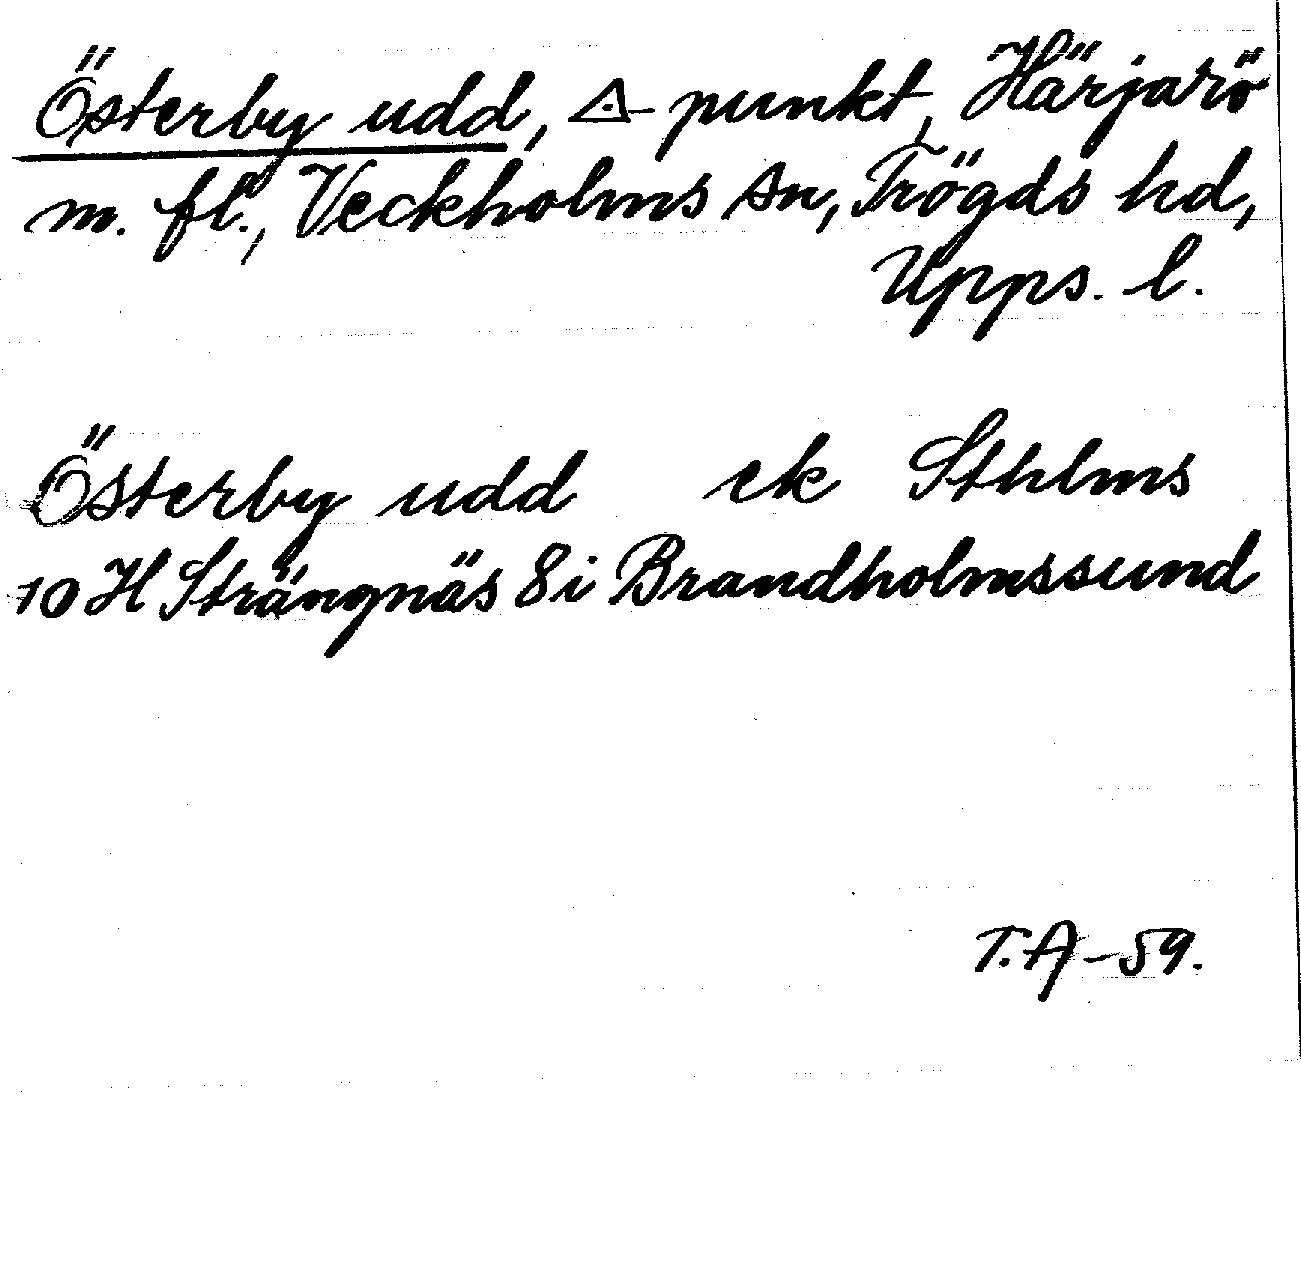 Österby udd, △-punkt, Härjarö
m. fl., Veckholms sn, Trögds hd,
Upps. l.
Österby udd ek Sthlms
10 H Strängnäs 8 i Brandholmssund
T.A-59.